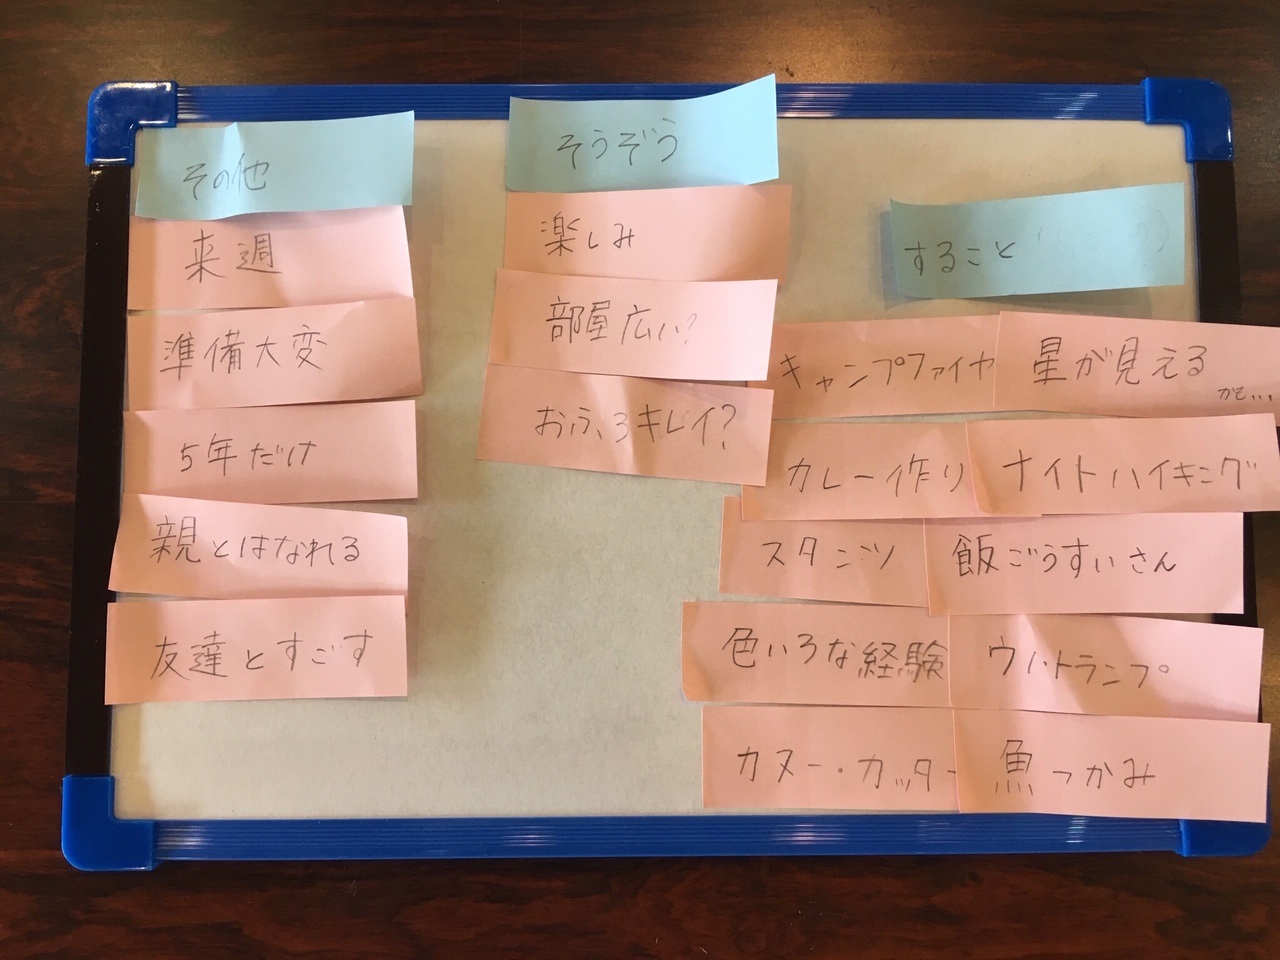 その他
来週
準備大変
5年だけ
親とはなれる
友達とすごす
そうぞう
楽しみ
部屋広い?
おふろキレイ?
すること
キャンプファイヤ
星が見える
かも...
カレー作り
ナイトハイキング
スタンツ
飯ごうすいさん
色いろな経験
ウノ・トランプ
カヌー・カッター
魚つかみ